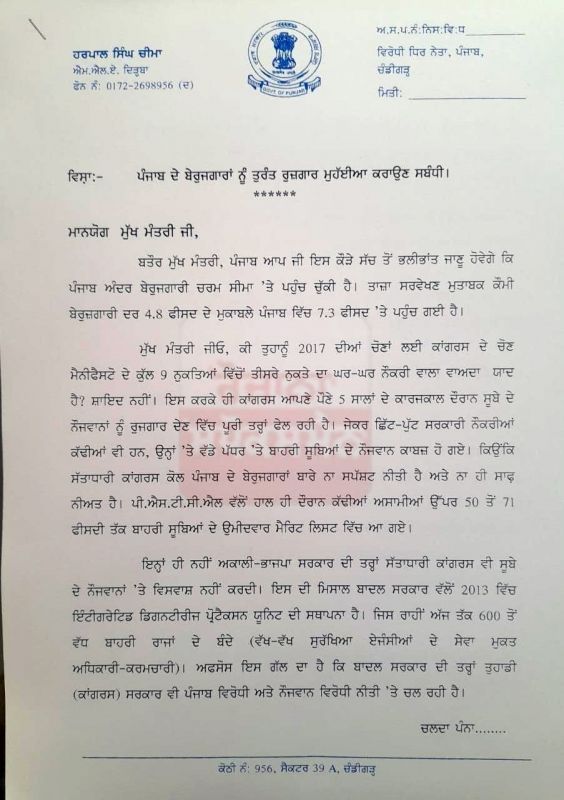 ਹਰਪਾਲ ਸਿੰਘ ਚੀਮਾ
ਐਮ.ਐਲ.ਏ. ਦਿੜ੍ਹਬਾ
ਫੋਨ ਨੰ: 0172-2698956 (ਦ)
GOVT OF PUNJAB
ਅ.ਸ.ਪ.ਨੰ:ਨਿਸ:ਵਿ:ਧ
ਵਿਰੋਧੀ ਧਿਰ ਨੇਤਾ, ਪੰਜਾਬ,
ਚੰਡੀਗੜ੍ਹ
ਮਿਤੀ:
ਵਿਸ਼ਾ:- ਪੰਜਾਬ ਦੇ ਬੇਰੁਜਗਾਰਾਂ ਨੂੰ ਤੁਰੰਤ ਰੁਜ਼ਗਾਰ ਮੁਹੱਈਆ ਕਰਾਉਣ ਸਬੰਧੀ।
******
ਮਾਨਯੋਗ ਮੁੱਖ ਮੰਤਰੀ ਜੀ,
ਬਤੌਰ ਮੁੱਖ ਮੰਤਰੀ, ਪੰਜਾਬ ਆਪ ਜੀ ਇਸ ਕੌੜੇ ਸੱਚ ਤੋਂ ਭਲੀਭਾਂਤ ਜਾਣੂ ਹੋਵੇਗੇ ਕਿ
ਪੰਜਾਬ ਅੰਦਰ ਬੇਰੁਜਗਾਰੀ ਚਰਮ ਸੀਮਾ 'ਤੇ ਪਹੁੰਚ ਚੁੱਕੀ ਹੈ। ਤਾਜ਼ਾ ਸਰਵੇਖਣ ਮੁਤਾਬਕ ਕੌਮੀ
ਬੇਰੁਜ਼ਗਾਰੀ ਦਰ 4.8 ਫੀਸਦ ਦੇ ਮੁਕਾਬਲੇ ਪੰਜਾਬ ਵਿੱਚ 7.3 ਫੀਸਦ 'ਤੇ ਪਹੁੰਚ ਗਈ ਹੈ।
ਮੁੱਖ ਮੰਤਰੀ ਜੀਓ, ਕੀ ਤੁਹਾਨੂੰ 2017 ਦੀਆਂ ਚੋਣਾਂ ਲਈ ਕਾਂਗਰਸ ਦੇ ਚੋਣ
ਮੈਨੀਫੈਸਟੋ ਦੇ ਕੁੱਲ 9 ਨੁਕਤਿਆਂ ਵਿੱਚੋਂ ਤੀਸਰੇ ਨੁਕਤੇ ਦਾ ਘਰ-ਘਰ ਨੌਕਰੀ ਵਾਲਾ ਵਾਅਦਾ ਯਾਦ
ਹੈ? ਸ਼ਾਇਦ ਨਹੀਂ। ਇਸ ਕਰਕੇ ਹੀ ਕਾਂਗਰਸ ਆਪਣੇ ਪੌਣੇ 5 ਸਾਲਾਂ ਦੇ ਕਾਰਜਕਾਲ ਦੌਰਾਨ ਸੂਬੇ ਦੇ
ਨੌਜਵਾਨਾਂ ਨੂੰ ਰੁਜਗਾਰ ਦੇਣ ਵਿੱਚ ਪੂਰੀ ਤਰ੍ਹਾਂ ਫੇਲ ਰਹੀ ਹੈ। ਜੇਕਰ ਛਿੱਟ-ਪੁੱਟ ਸਰਕਾਰੀ ਨੌਕਰੀਆਂ
ਕੱਢੀਆਂ ਵੀ ਹਨ, ਉਨ੍ਹਾਂ 'ਤੇ ਵੱਡੇ ਪੱਧਰ 'ਤੇ ਬਾਹਰੀ ਸੂਬਿਆਂ ਦੇ ਨੌਜਵਾਨ ਕਾਬਜ਼ ਹੋ ਗਏ। ਕਿਉਂਕਿ
ਸੱਤਾਧਾਰੀ ਕਾਂਗਰਸ ਕੋਲ ਪੰਜਾਬ ਦੇ ਬੇਰੁਜਗਾਰਾਂ ਬਾਰੇ ਨਾ ਸਪੱਸ਼ਟ ਨੀਤੀ ਹੈ ਅਤੇ ਨਾ ਹੀ ਸਾਫ਼
ਨੀਅਤ ਹੈ। ਪੀ.ਐਸ.ਟੀ.ਸੀ.ਐਲ ਵੱਲੋਂ ਹਾਲ ਹੀ ਦੌਰਾਨ ਕੱਢੀਆਂ ਅਸਾਮੀਆਂ ਉੱਪਰ 50 ਤੋਂ 71
ਫੀਸਦੀ ਤੱਕ ਬਾਹਰੀ ਸੂਬਿਆਂ ਦੇ ਉਮੀਦਵਾਰ ਮੈਰਿਟ ਲਿਸਟ ਵਿੱਚ ਆ ਗਏ।
ਇਨ੍ਹਾਂ ਹੀ ਨਹੀਂ ਅਕਾਲੀ-ਭਾਜਪਾ ਸਰਕਾਰ ਦੀ ਤਰ੍ਹਾਂ ਸੱਤਾਧਾਰੀ ਕਾਂਗਰਸ ਵੀ ਸੂਬੇ
ਦੇ ਨੌਜਵਾਨਾਂ 'ਤੇ ਵਿਸਵਾਸ਼ ਨਹੀਂ ਕਰਦੀ। ਇਸ ਦੀ ਮਿਸਾਲ ਬਾਦਲ ਸਰਕਾਰ ਵੱਲੋਂ 2013 ਵਿੱਚ
ਇੰਟੀਗਰੇਟਿਡ ਡਿਗਨਟੀਰੀਜ਼ ਪ੍ਰੋਟੈਕਸਨ ਯੂਨਿਟ ਦੀ ਸਥਾਪਨਾ ਹੈ। ਜਿਸ ਰਾਹੀਂ ਅੱਜ ਤੱਕ 600 ਤੋਂ
ਵੱਧ ਬਾਹਰੀ ਰਾਜਾਂ ਦੇ ਬੰਦੇ (ਵੱਖ-ਵੱਖ ਸੁਰੱਖਿਆ ਏਜੰਸੀਆਂ ਦੇ ਸੇਵਾ ਮੁਕਤ
ਅਧਿਕਾਰੀ-ਕਰਮਚਾਰੀ)। ਅਫਸੋਸ ਇਸ ਗੱਲ ਦਾ ਹੈ ਕਿ ਬਾਦਲ ਸਰਕਾਰ ਦੀ ਤਰ੍ਹਾਂ ਤੁਹਾਡੀ
(ਕਾਂਗਰਸ) ਸਰਕਾਰ ਵੀ ਪੰਜਾਬ ਵਿਰੋਧੀ ਅਤੇ ਨੌਜਵਾਨ ਵਿਰੋਧੀ ਨੀਤੀ 'ਤੇ ਚਲ ਰਹੀ ਹੈ।
ਚਲਦਾ ਪੰਨਾ........
ਕੋਠੀ ਨੰ: 956, ਸੈਕਟਰ 39 A, ਚੰਡੀਗੜ੍ਹ